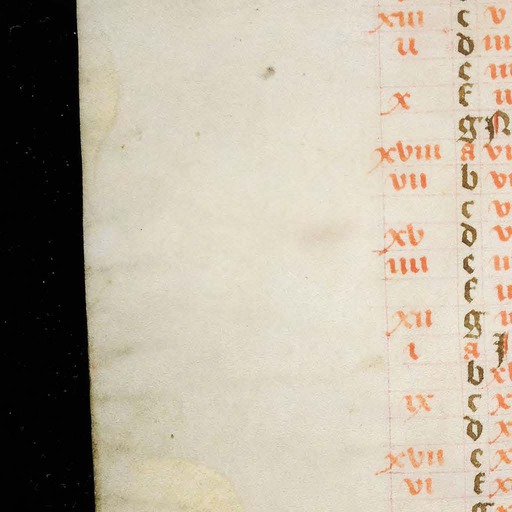 xiii c v
ii d iii
e iii
x f ii
g N
xviii a vi
vii b vi
c v
xv d v
iiii e ii
f ii
xii g
i a
b x
ix c x
d x
xvii e x
vi f x
g